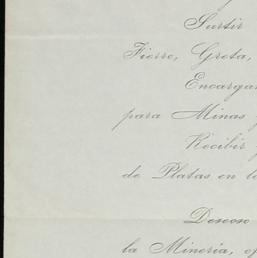 Surtir
Fierro, Greta,
Encargar
para Minas
Recibir
de Platas en
Deseoso
la Mineria,